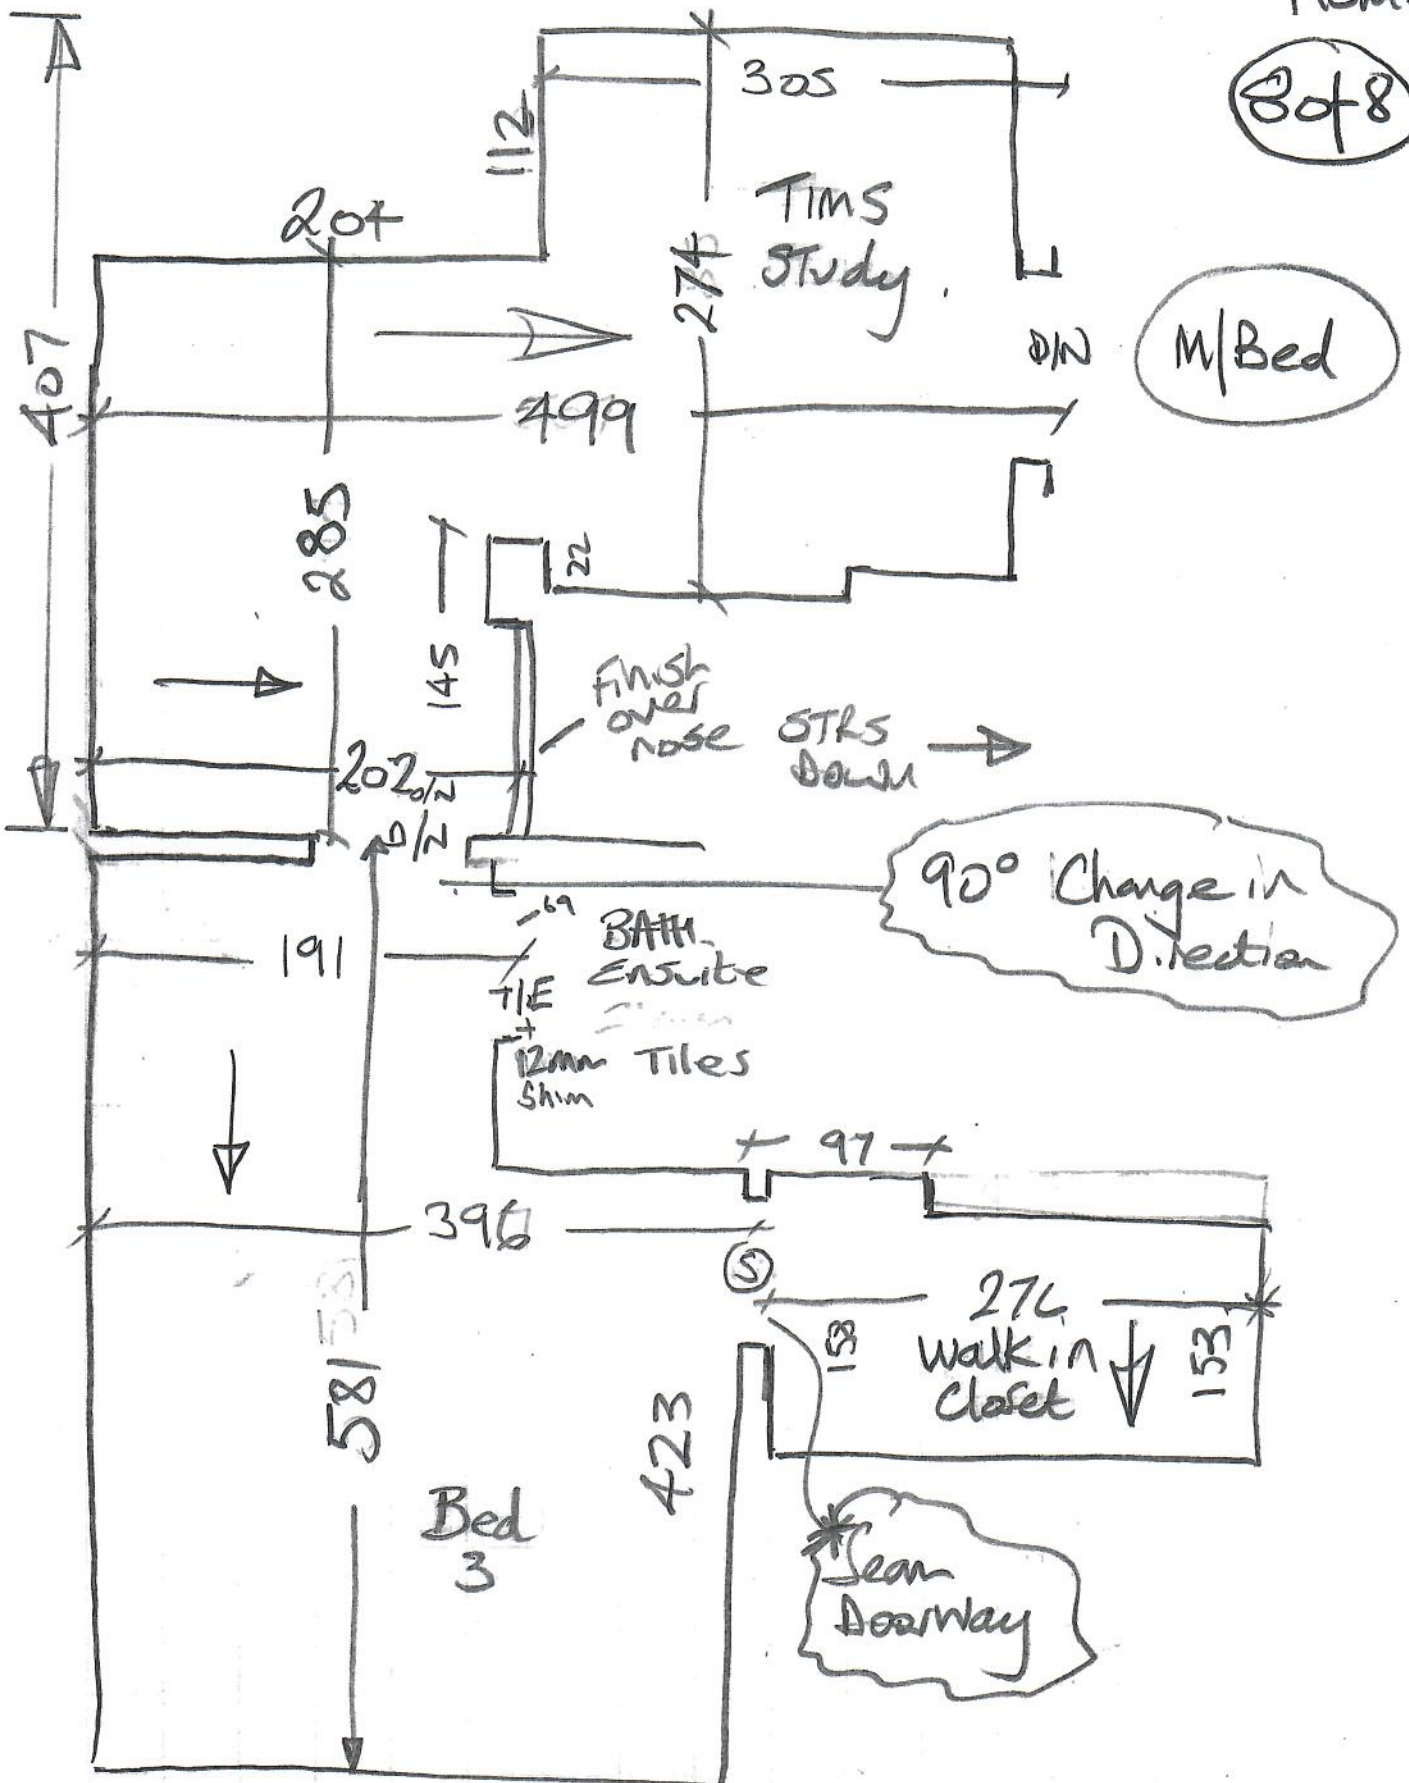 305
3 of 8
112
Tims
Study.
204
274
407
D/N
M/Bed
499
285
22
145
Finish
over
nose
STRS
Down
202 O/N
D/N
90° Change in
Direction
69
BATH
Ensuite
191
T/E
+
12mm Tiles
Shim
97
396
S
276
153
Walk in
Closet
153
581
423
Bed
3
Seam
Doorway